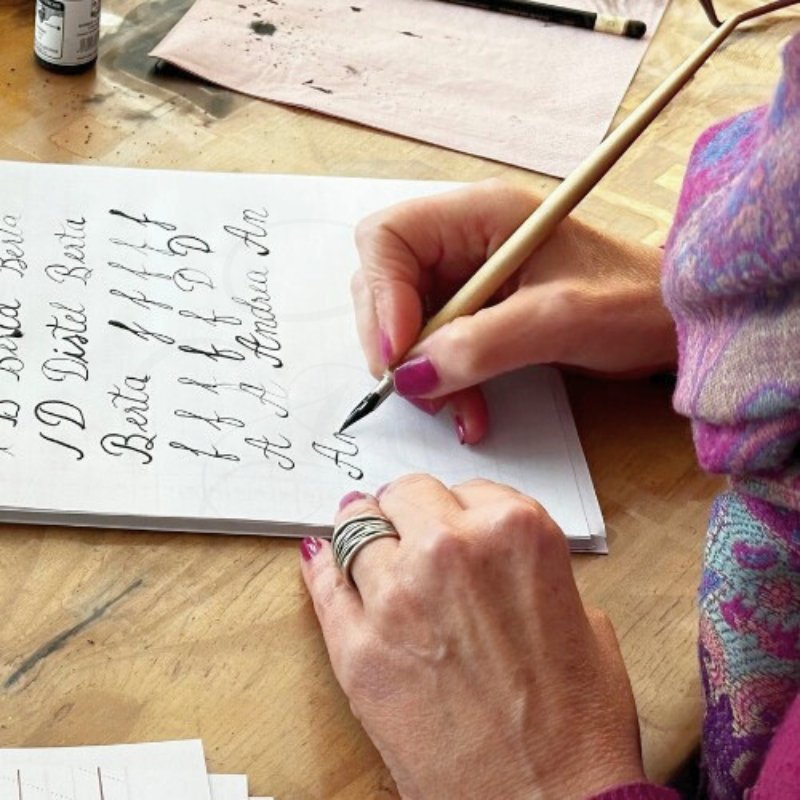 B Berta Berta
D Distel Berta
Berta f f f f f
f f f f f D D
A A Andrea An
An